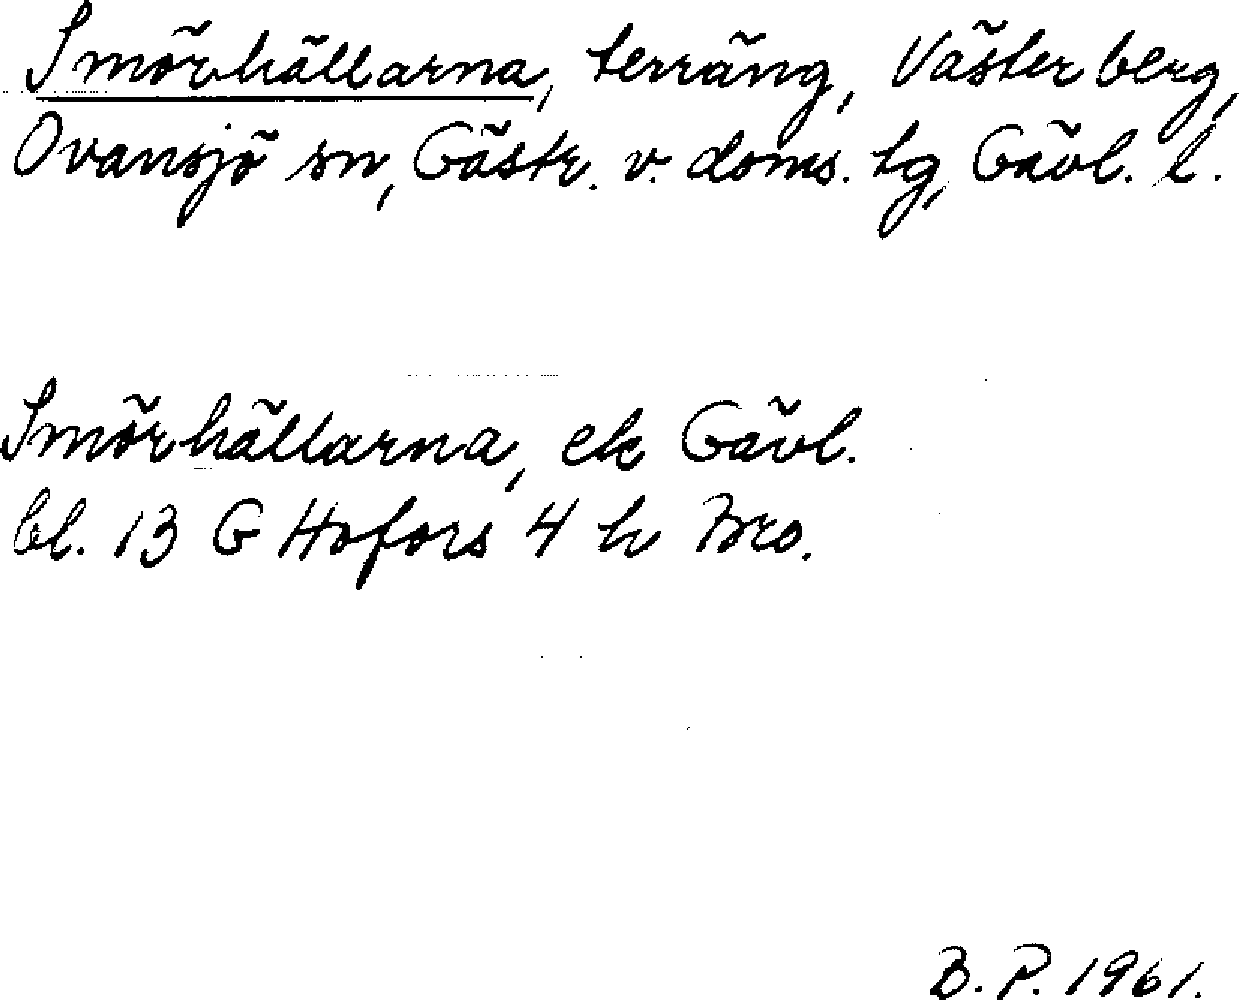 Smörhällarna, terräng, Västerberg,
Ovansjö sn, Gästr. v. doms. tg, Gävl. l.
Smörhällarna, ek Gävl.
bl. 13 G Hofors 4 h Bro.
B. P. 1961.